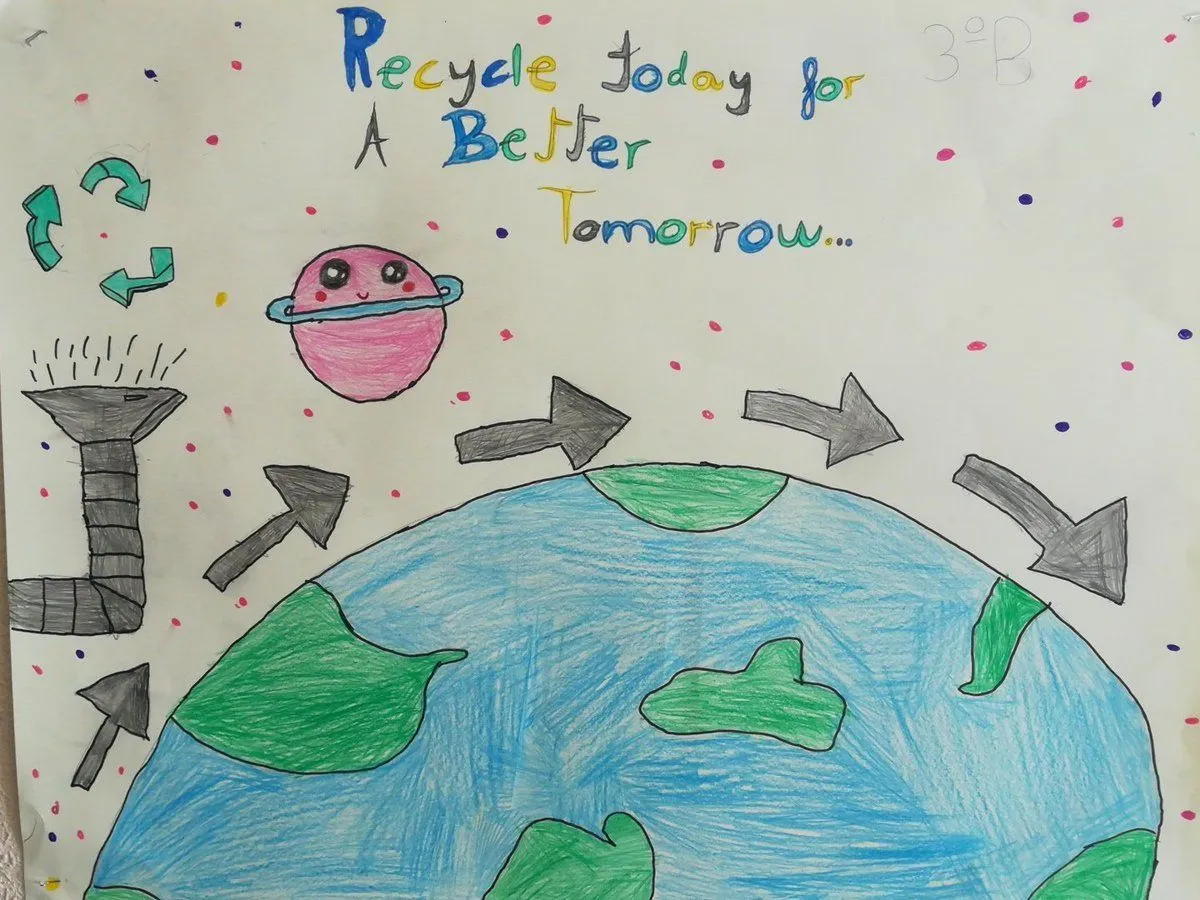 Recycle today for
3ºB
A Better
Tomorrow...